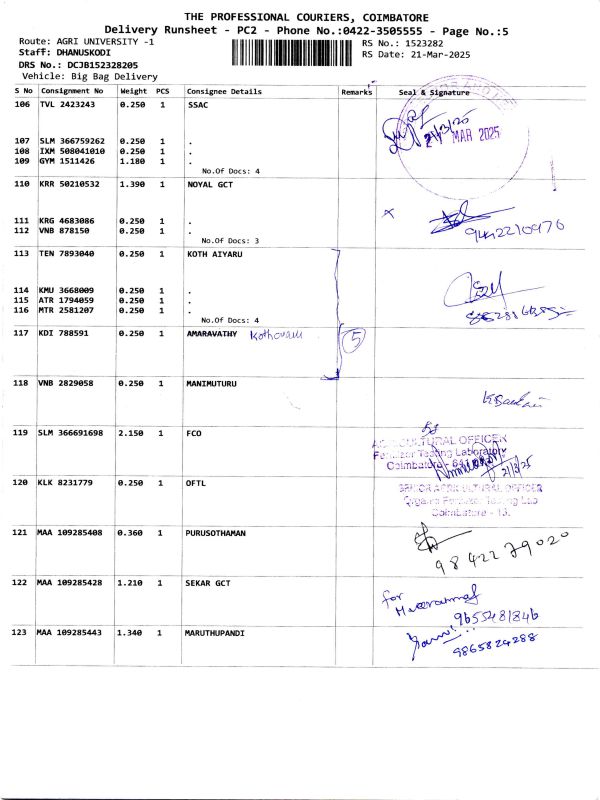 THE PROFESSIONAL COURIERS, COIMBATORE
Delivery Runsheet - PC2 - Phone No.:0422-3505555 - Page No.:5
Route: AGRI UNIVERSITY -1
RS No.: 1523282
Staff: DHANUSKODI
RS Date: 21-Mar-2025
DRS No.: DCJB152328205
Vehicle: Big Bag Delivery
S No Consignment No Weight PCS Consignee Details Remarks Seal & Signature
106 TVL 2423243 0.250 1 SSAC
21/3/25
21 MAR 2025
107 SLM 366759262 0.250 1 .
108 IXM 508041010 0.250 1 .
109 GYM 1511426 1.180 1 .
No.Of Docs: 4
110 KRR 50210532 1.390 1 NOYAL GCT
111 KRG 4683086 0.250 1 .
112 VNB 878150 0.250 1 .
9442210976
No.Of Docs: 3
113 TEN 7893040 0.250 1 KOTH AIYARU
114 KMU 3668009 0.250 1 .
115 ATR 1794059 0.250 1 .
116 MTR 2581207 0.250 1 .
No.Of Docs: 4
117 KDI 788591 0.250 1 AMARAVATHY 5
118 VNB 2829058 0.250 1 MANIMUTURU
119 SLM 366691698 2.150 1 FCO
AGRICULTURAL OFFICER
Fertilizer Testing Laboratory
Coimbatore - 641
21/3/25
120 KLK 8231779 0.250 1 OFTL
SENIOR AGRICULTURAL OFFICER
Organic Fertilizer Testing Lab
Coimbatore - 13.
121 MAA 109285408 0.360 1 PURUSOTHAMAN
98422 79020
122 MAA 109285428 1.210 1 SEKAR GCT
for
9655481846
123 MAA 109285443 1.340 1 MARUTHUPANDI
9865824288